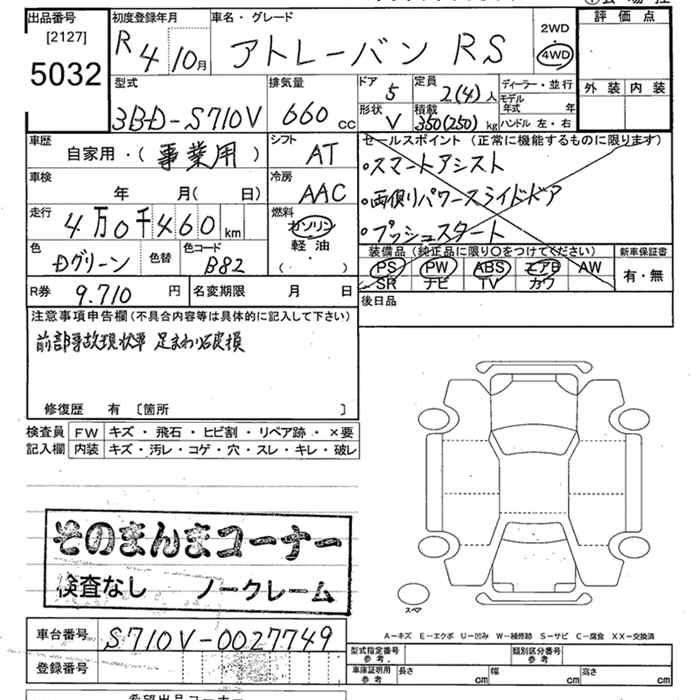 出品番号 初度登録年月 車名・グレード 2WD 評価点
[2127] R4 10月 アトレーバン RS 4WD
5032
型式 排気量 ドア 5 定員 2(4)人 ディーラー・並行 外装 内装
3BD-S710V 660cc 形状 V 積載 350(250)kg モデル年式 年
ハンドル 左・右
車歴 シフト セールスポイント (正常に機能するものに限ります)
自家用・(事業用) AT ・スマートアシスト
車検 冷房 ・両側パワースライドドア
年 月(日) AAC ・プッシュスタート
走行 4万0千460km 燃料 ガソリン
軽油
(・)
色 Dグリーン 色替 色コード B82
装備品(純正品に限り〇をつけてください) 新車保証書
PS PW ABS エアB AW 有・無
SR ナビ TV カワ
R券 9.710円 名変期限 月 日 後日品
注意事項申告欄(不具合内容等は具体的に記入して下さい)
前部事故現状車 足まわり破損
修復歴 有 〔箇所 〕
検査員 FW キズ・飛石・ヒビ割・リペア跡・×要
記入欄 内装 キズ・汚レ・コゲ・穴・スレ・キレ・破レ
そのまんまコーナー
検査なし ノークレーム
スペア
A-キズ E-エクボ U-凹み W-補修跡 S-サビ C-腐食 XX-交換済
車台番号 S710V-0027749
登録番号
型式指定番号 参考 類別区分番号 参考
車庫証明用 参考 長さ cm 幅 cm 高さ cm
希望出品コーナー